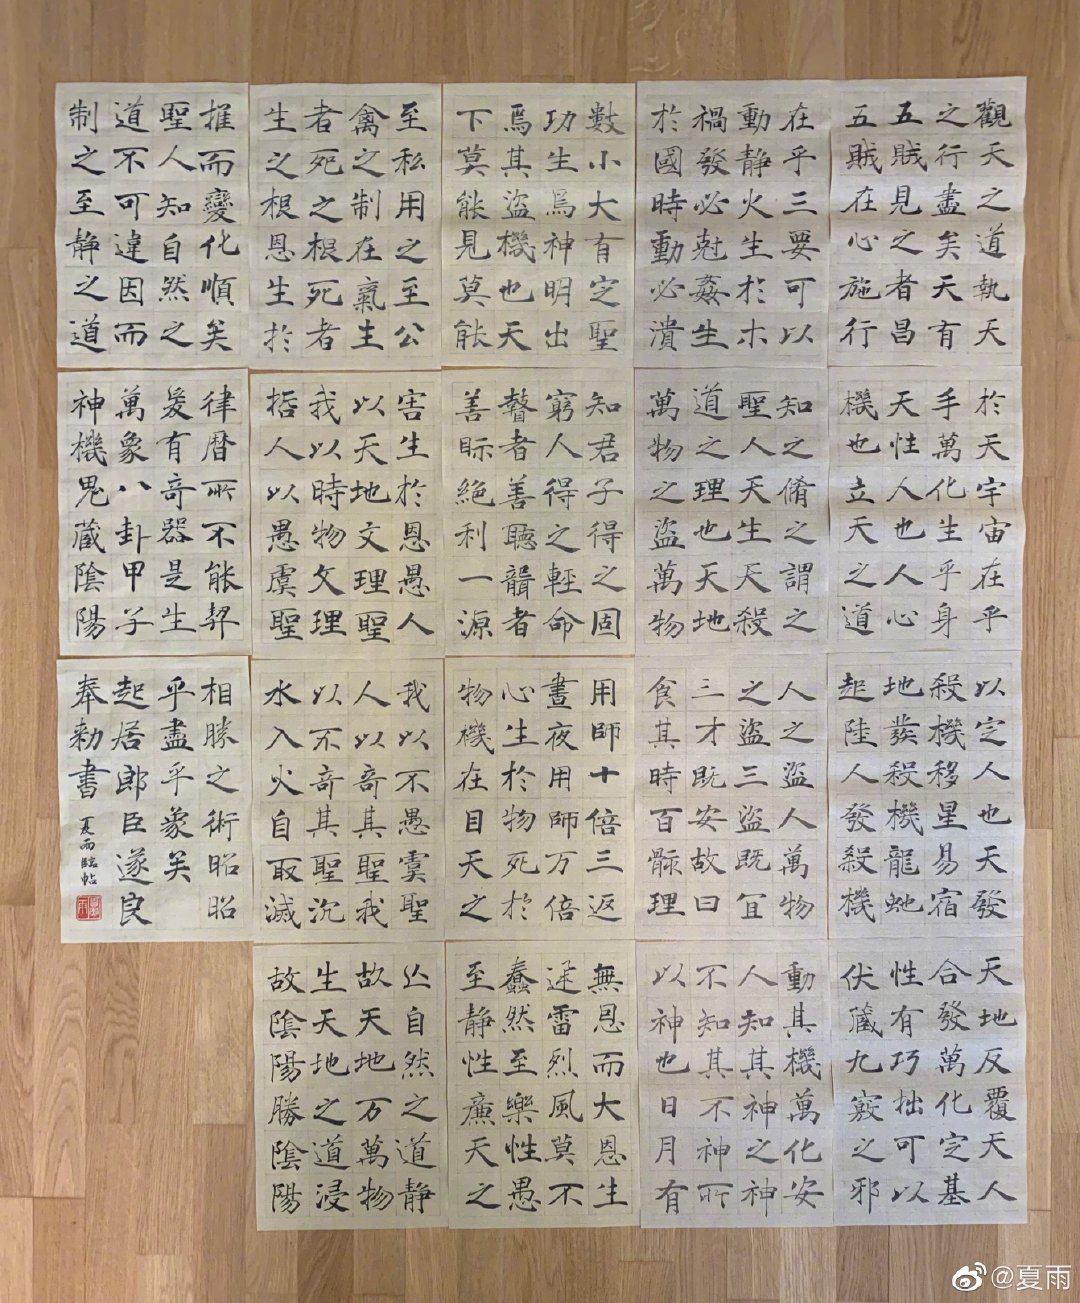 觀天之道執天
之行盡矣天有
五賊見之者昌
五賊在心施行
於天宇宙在乎
手萬化生乎身
天性人也人心
機也立天之道
以定人也天發
殺機移星易宿
地發殺機龍虵
起陸人發殺機
天地反覆天人
合發萬化定基
性有巧拙可以
伏藏九竅之邪
在乎三要可以
動静火生於木
禍發必尅姦生
於國時動必潰
知之脩之謂之
聖人天生天殺
道之理也天地
萬物之盜萬物
人之盜人萬物
之盜三盜既冝
三才既安故曰
食其時百骸理
動其機萬化安
人知其神之神
不知其不神所
以神也日月有
數小大有定聖
功生焉神明出
焉其盜機也天
下莫能見莫能
知君子得之固
窮人得之輕命
瞽者善聽聾者
善眎絕利一源
用師十倍三返
晝夜用師万倍
心生於物死於
物機在目天之
無恩而大恩生
迅雷烈風莫不
蠢然至樂性愚
至静性廉天之
至私用之至公
禽之制在氣生
者死之根死者
生之根恩生於
害生於恩愚人
以天地文理聖
我以時物文理
哲人以愚虞聖
我以不愚虞聖
人以奇其聖我
以不奇其聖沉
水入火自取滅
亡自然之道静
故天地万萬物
生天地之道浸
故陰陽勝陰陽
推而變化順矣
聖人知自然之
道不可違因而
制之至静之道
律曆所不能契
爰有奇器是生
萬象八卦甲子
神機鬼藏陰陽
相勝之術昭昭
乎盡乎象矣
起居郎臣遂良
奉勅書
夏雨臨帖
夏雨
@夏雨